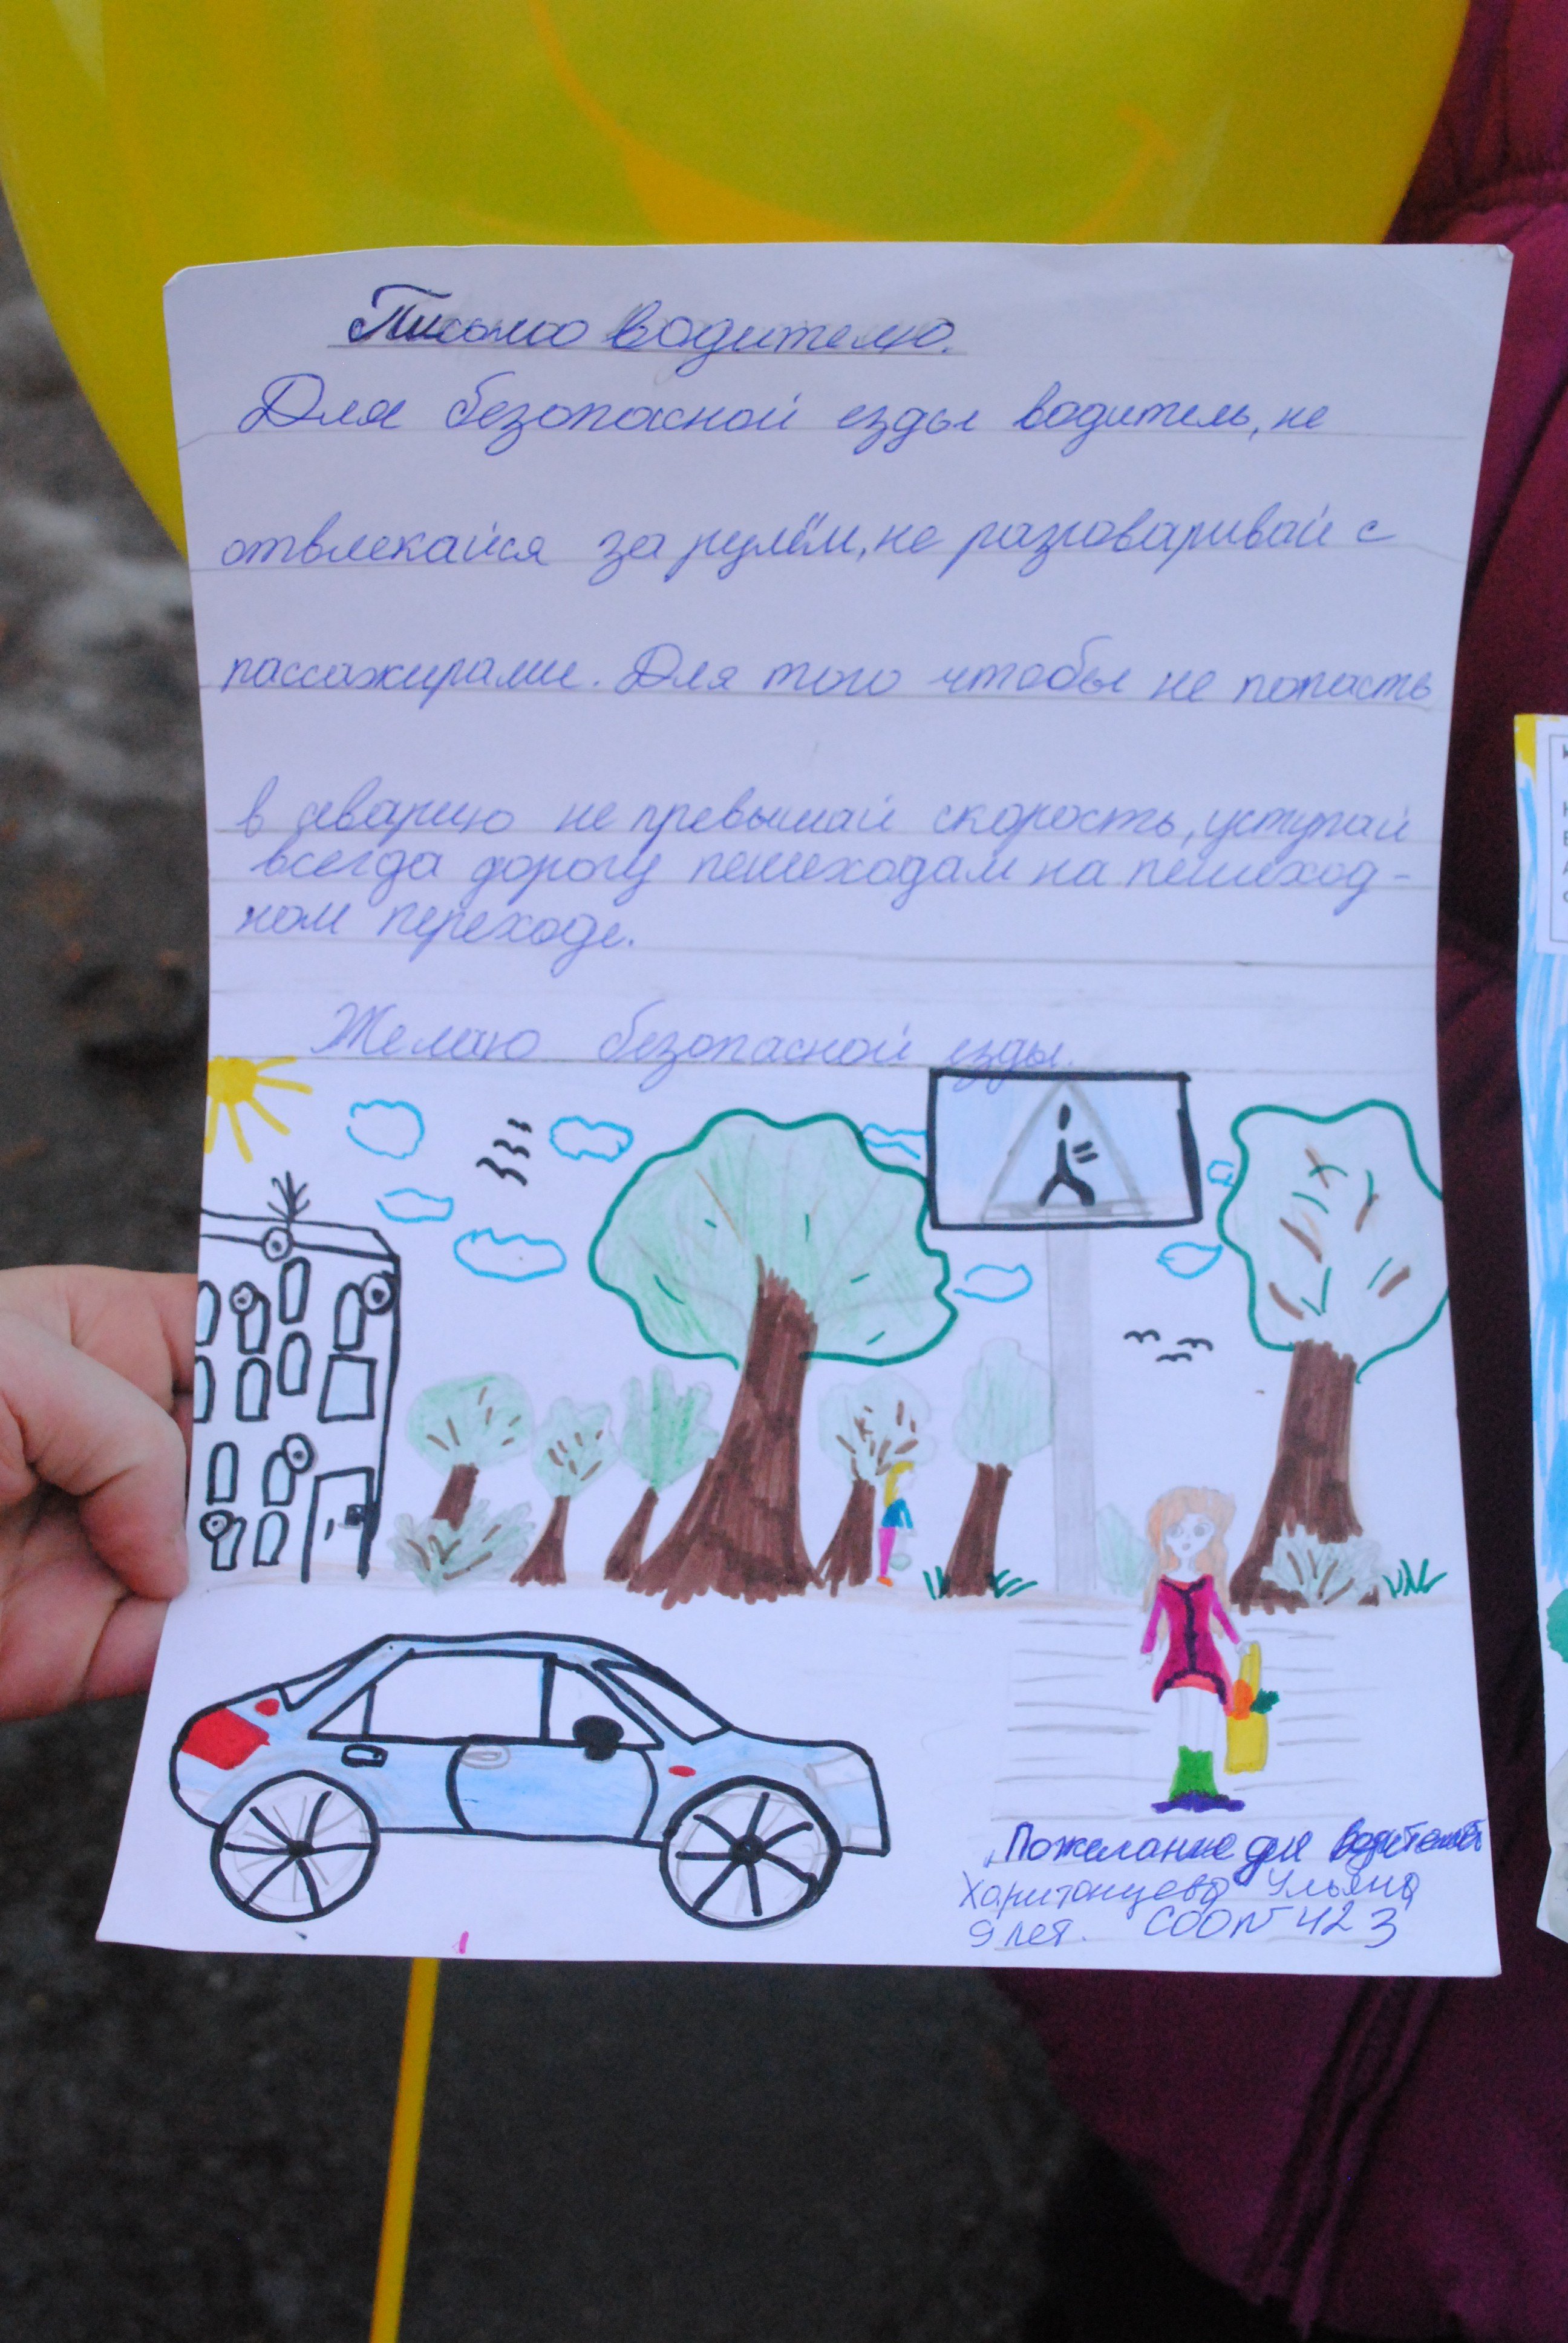 Письмо водителю.
Для безопасной езды водитель, не
отвлекайся за рулём, не разговаривай с
пассажирами. Для того чтобы не попасть
в аварию не превышай скорость, уступай
всегда дорогу пешеходам на пешеход-
ном переходе.
Желаю безопасной езды.
Пожелание для водителя
Харитонцева Ульяна
9 лет. СООN 423